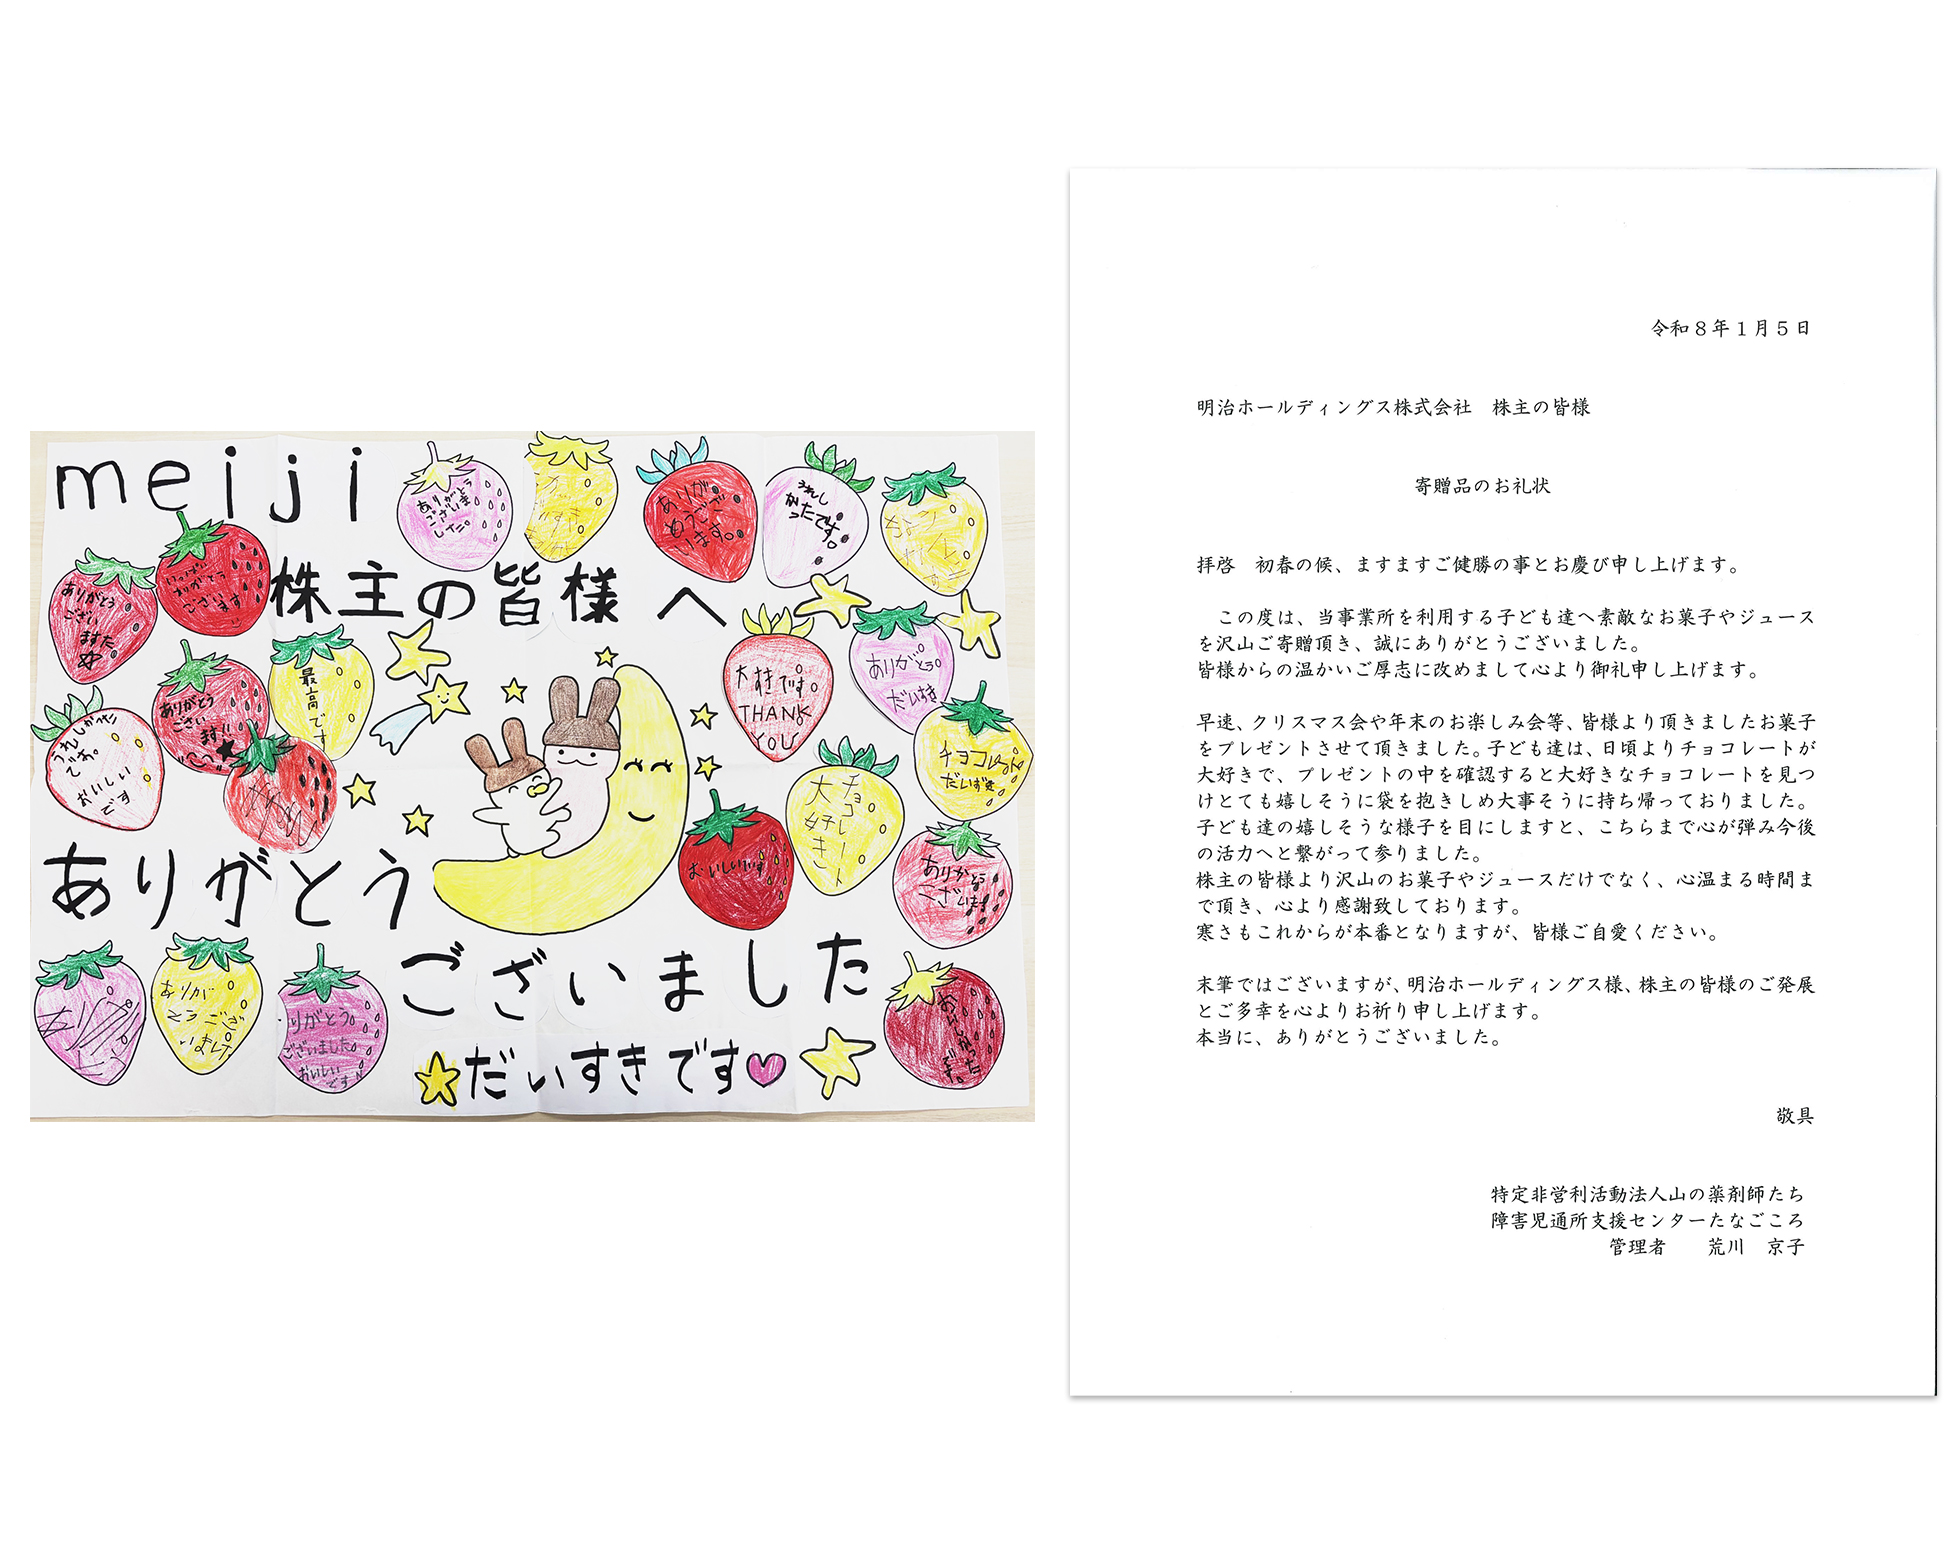 meiji
株主の皆様へ
ありがとう
ございました
だいすきです
ありがとう
ございま
した。
ありが
とうござ
います。
うれし
かったです。
ありがとう
ござい
ました
いっぱい
ありがとう
ございます!!
最高です
ありがとう
ござい
ます!!
うれしかった
です。
おいしい
です
大好きです。
THANK
YOU
ありがとう。
だいすき
チョコレート
だいすき
チョコレート
大好き
おいしいです
ありがとう
ございます
ありが
とうござ
いました
りがとう。
ございました。
おいしい
です
おいしかった
です。
令和８年１月５日
明治ホールディングス株式会社　株主の皆様
寄贈品のお礼状
拝啓　初春の候、ますますご健勝の事とお慶び申し上げます。
この度は、当事業所を利用する子ども達へ素敵なお菓子やジュース
を沢山ご寄贈頂き、誠にありがとうございました。
皆様からの温かいご厚志に改めまして心より御礼申し上げます。
早速、クリスマス会や年末のお楽しみ会等、皆様より頂きましたお菓子
をプレゼントさせて頂きました。子ども達は、日頃よりチョコレートが
大好きで、プレゼントの中を確認すると大好きなチョコレートを見つ
けとても嬉しそうに袋を抱きしめ大事そうに持ち帰っておりました。
子ども達の嬉しそうな様子を目にしますと、こちらまで心が弾み今後
の活力へと繋がって参りました。
株主の皆様より沢山のお菓子やジュースだけでなく、心温まる時間ま
で頂き、心より感謝致しております。
寒さもこれからが本番となりますが、皆様ご自愛ください。
末筆ではございますが、明治ホールディングス様、株主の皆様のご発展
とご多幸を心よりお祈り申し上げます。
本当に、ありがとうございました。
敬具
特定非営利活動法人山の薬剤師たち
障害児通所支援センターたなごころ
管理者　　荒川　京子